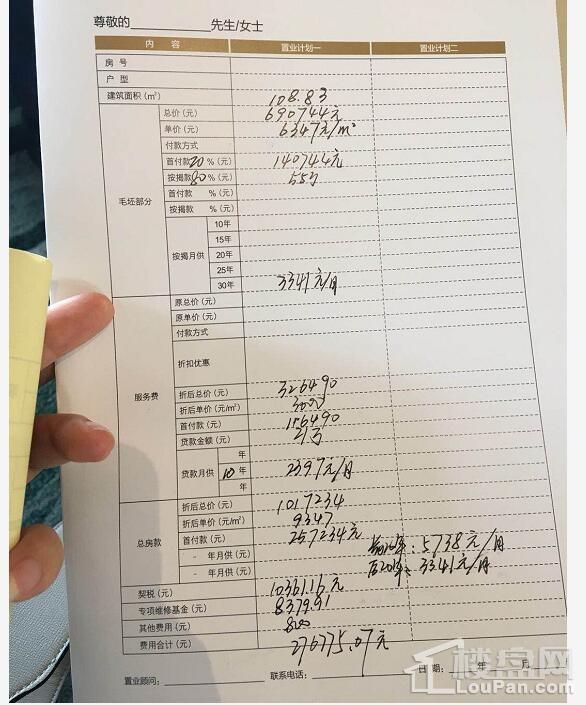 尊敬的 先生/女士
内 容 置业计划一 置业计划二
房 号
户 型
建筑面积(㎡) 108.83
毛坯部分
总价(元) 690744元
单价(元) 6347元/m²
付款方式
首付款20%(元) 140744元
按揭款80%(元) 55万
首付款 %(元)
按揭款 %(元)
按揭月供
10年
15年
20年
25年
30年 3341元/月
服务费
原总价(元)
原单价(元)
付款方式
折扣优惠
折后总价(元) 326490
折后单价(元/㎡) 3000
首付款(元) 116490
贷款金额(元) 21万
贷款月供
年
10年 2397元/月
年
总房款
折后总价(元) 1017234
折后单价(元/㎡) 9347
首付款(元) 257234元
- 年月供(元) 前10年:5738元/月
- 年月供(元) 后20年:3341元/月
契税(元) 10361.16元
专项维修基金(元) 8379.91
其他费用(元) 800
费用合计(元) 270775.07元
置业顾问: 联系电话: 日期: 年 月
楼盘网
LouPan.com